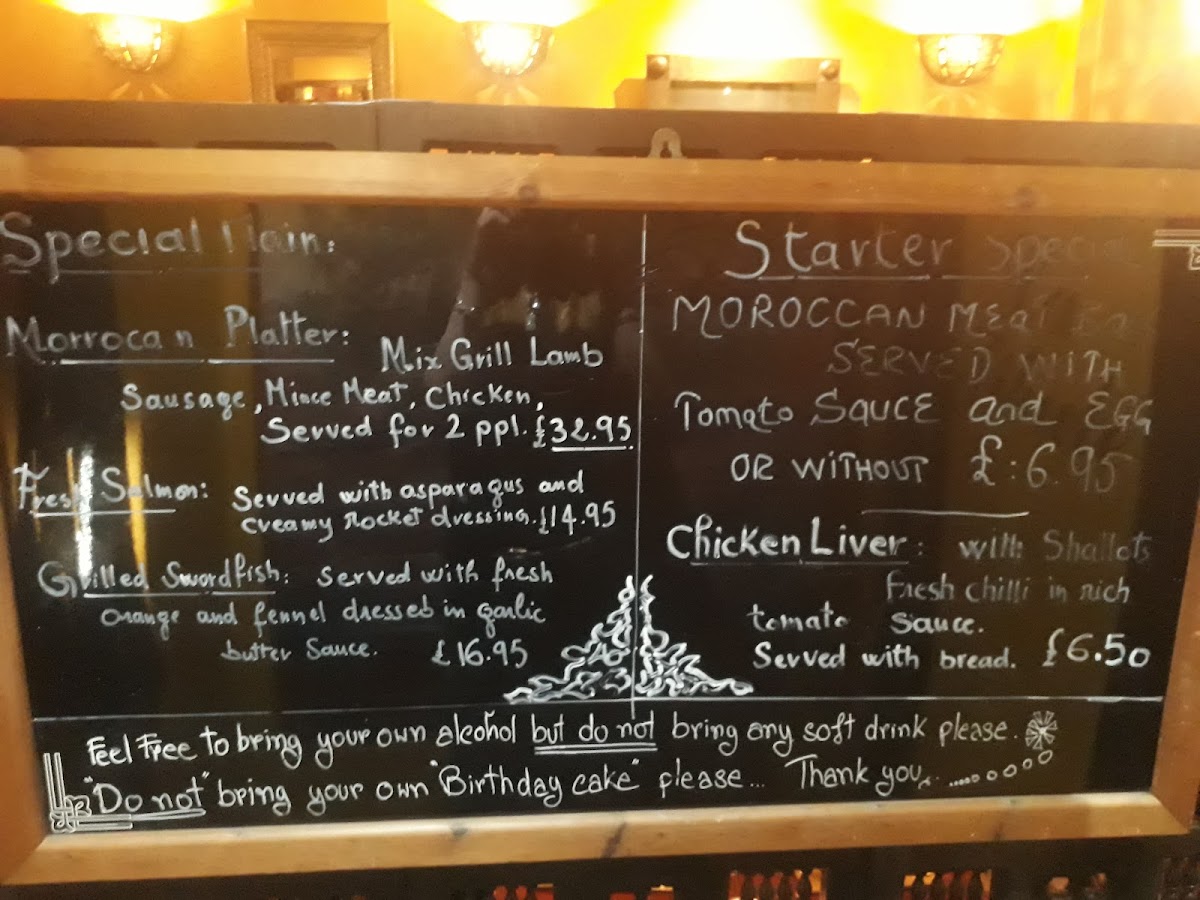 Special Main:
Morrocan Platter: Mix Grill Lamb
Sausage, Mince Meat, Chicken,
Served for 2 ppl. £32.95
Fresh Salmon: Served with asparagus and
creamy rocket dressing. £14.95
Grilled Swordfish: Served with fresh
orange and fennel dressed in garlic
butter Sauce. £16.95
Starter Special
MOROCCAN MEAT
SERVED WITH
Tomato SAUCE and EGG
OR WITHOUT £:6.95
Chicken Liver: with Shallots
Fresh chilli in rich
tomato sauce.
Served with bread. £6.50
Feel Free to bring your own alcohol but do not bring any soft drink please.
"Do not" bring your own "Birthday cake" please... Thank you